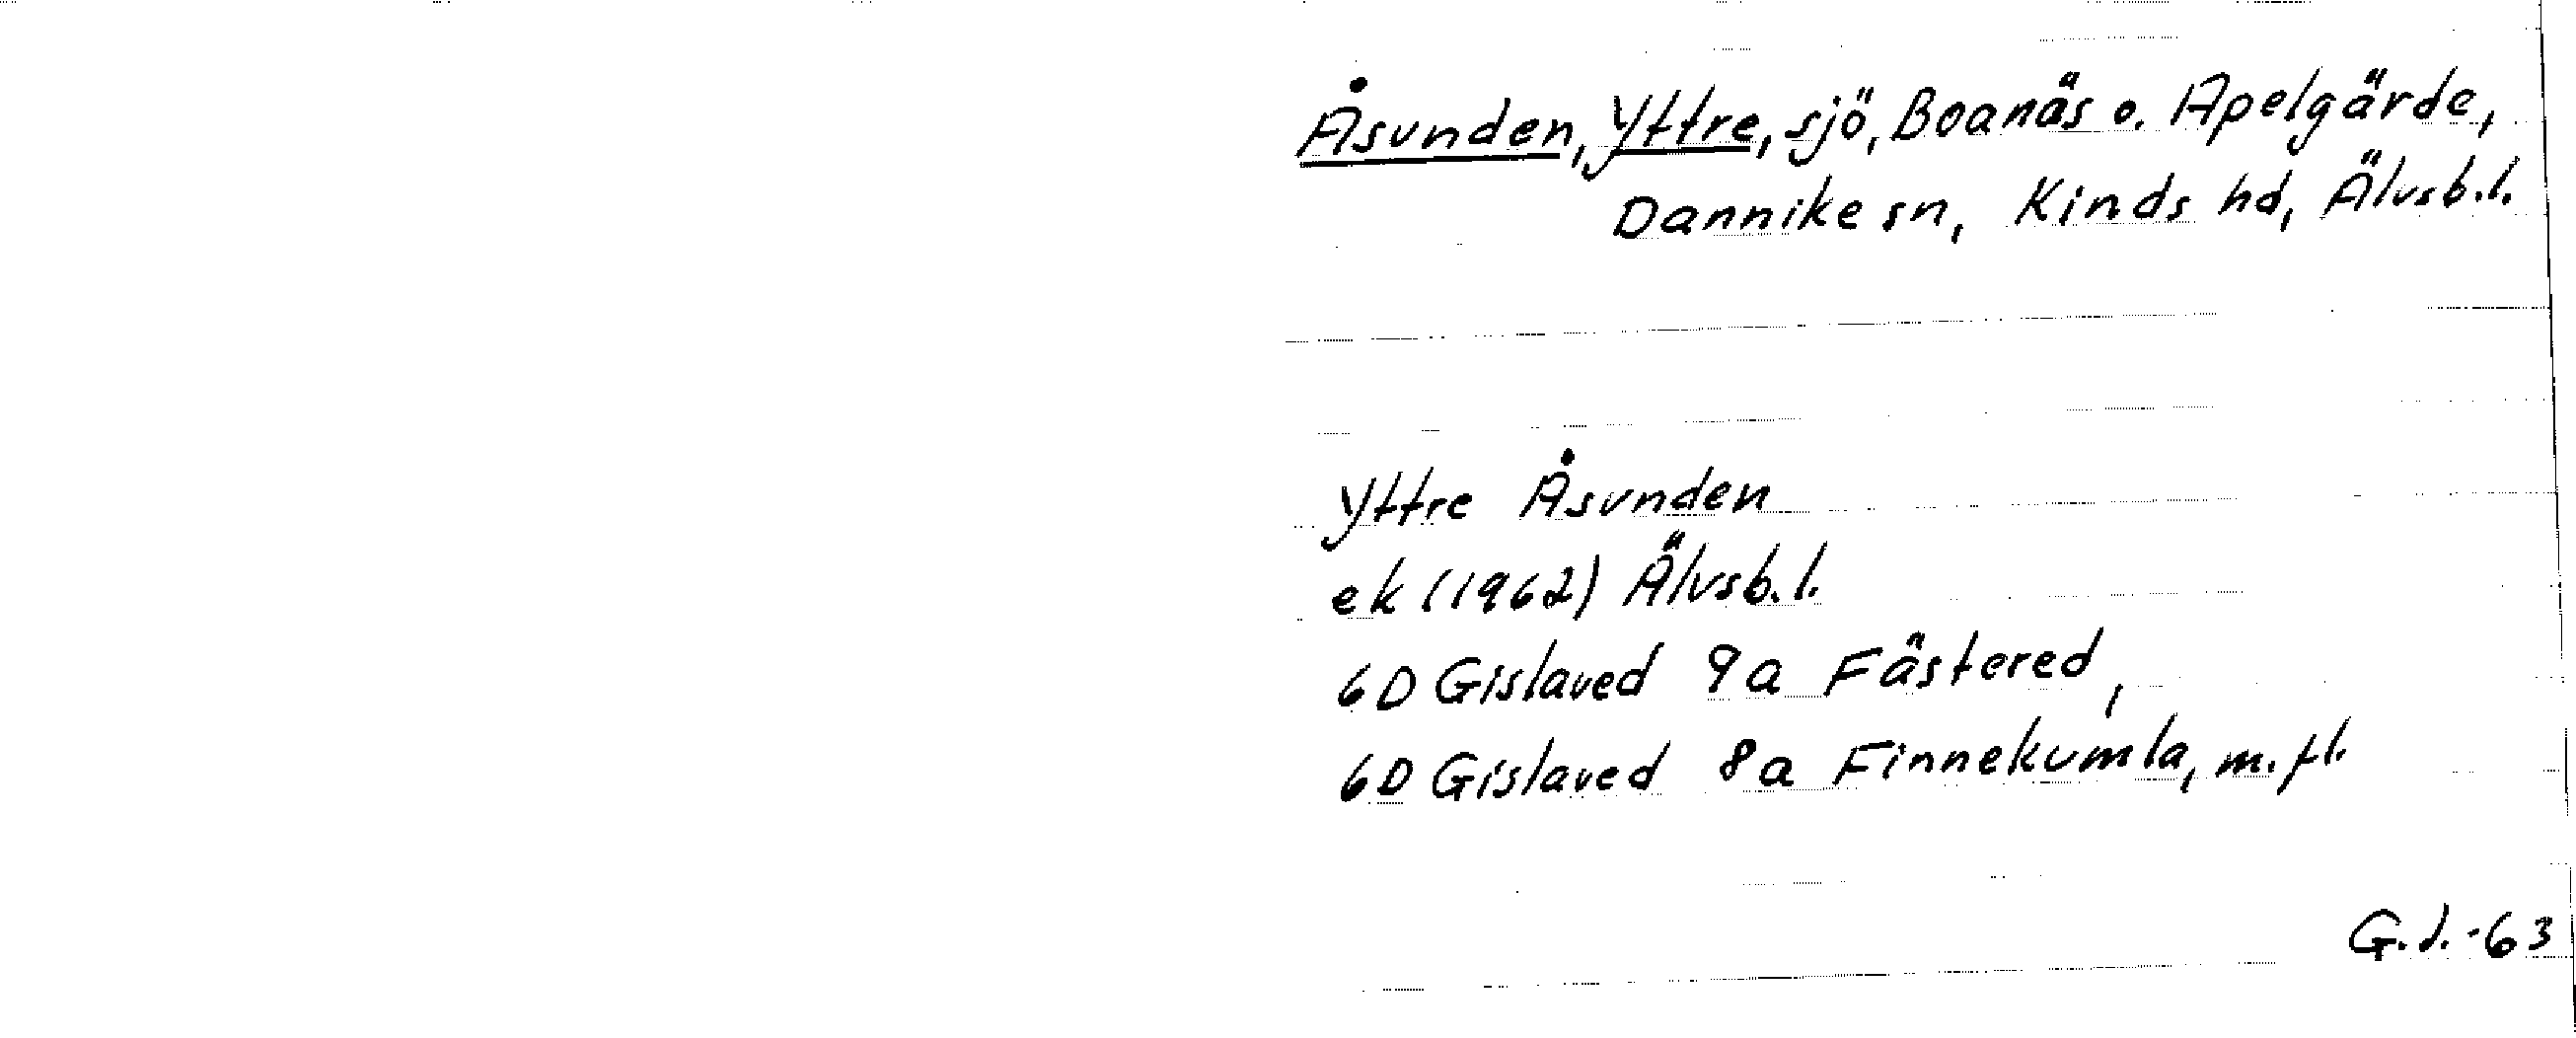 Åsunden, Yttre, sjö, Boanäs o. Apelgärde,
Dannike sn, Kinds hd, Älvsb.l.
Yttre Åsunden
ek (1962) Älvsb.l.
6D Gislaved 9a Fästered,
6D Gislaved 8a Finnekumla, m.fl.
G.J.-63